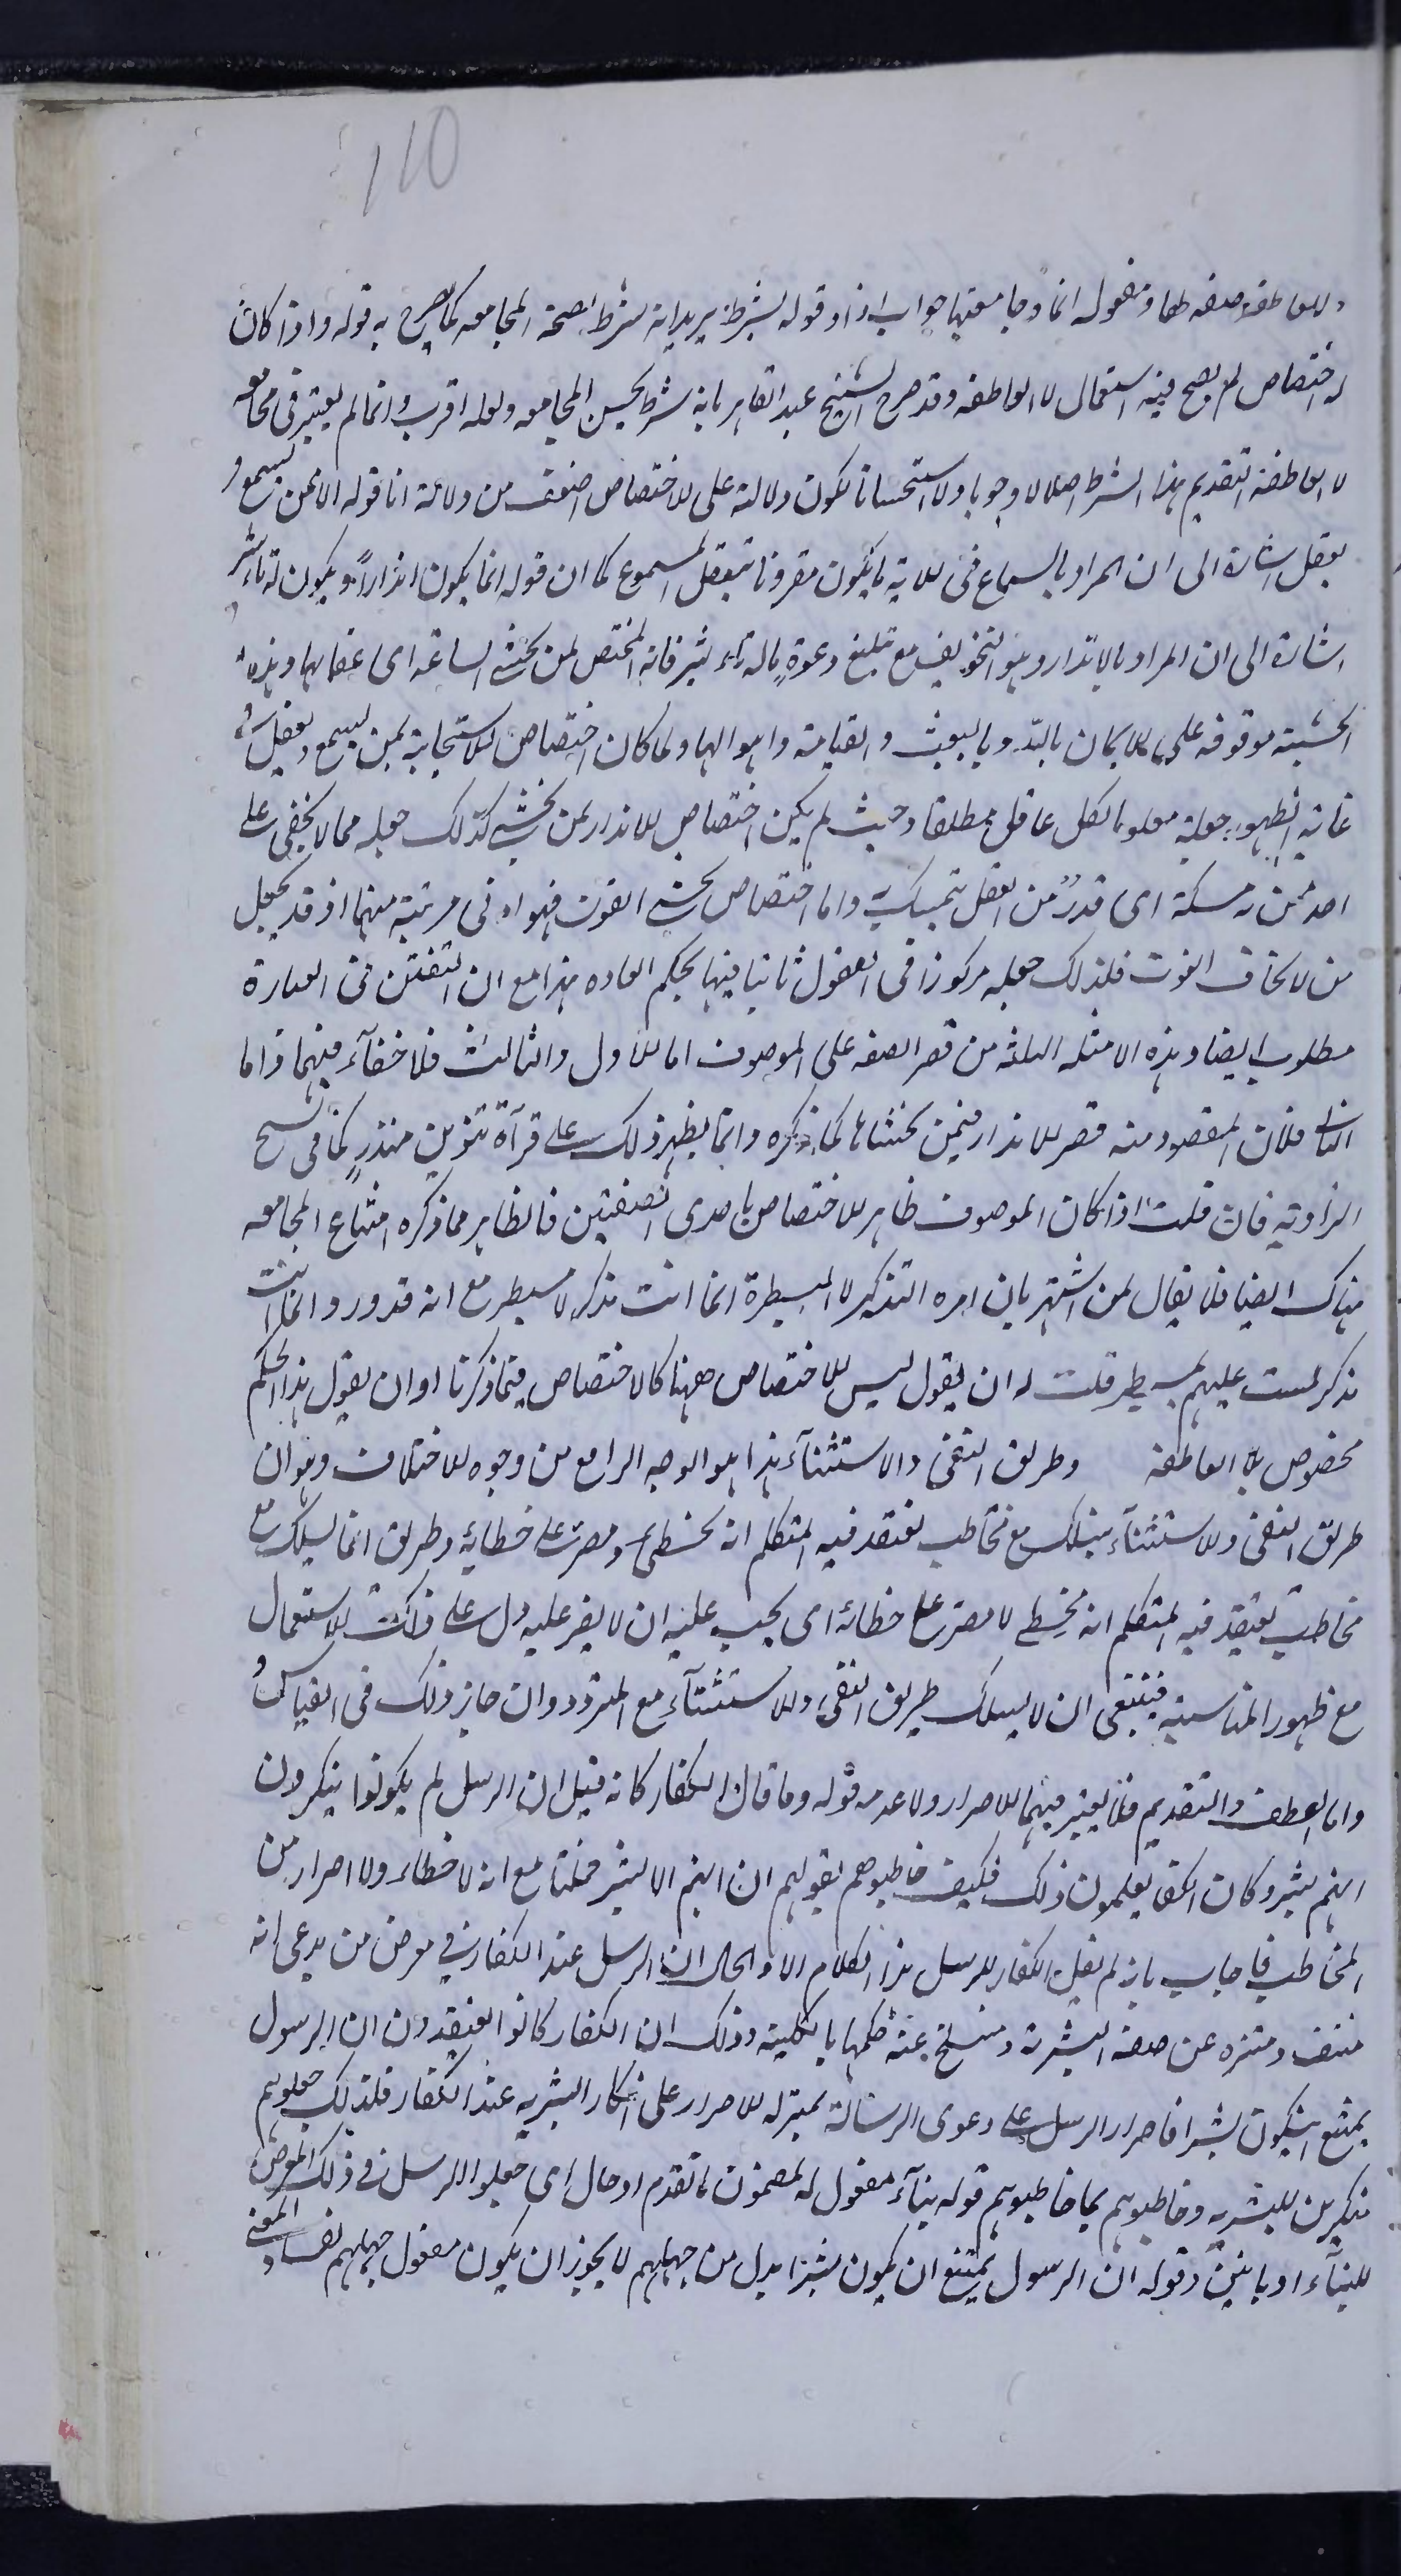 110
ولا العاطفة صفه طما ومفعوله انما وجامعتها جواب اذا وقوله بشرط يريد انه شرط لصحة المجامعه كما يصرح به قوله واذا كان
له اختصاص لم يصح فيه استعمال لا العاطفه وقد صرح الشيخ عبد القاهر بانه شرط لحسن المجامعه ولعله اقرب وانما لم يعتبر فى مجامعه
لا العاطفة التقديم هذا الشرط اصلا لا وجوبا ولا استحسانا لكون دلالته على الاختصاص اضعف من دلالة انما قوله الا ممن يسمع و
يعقل اشارة الى ان المراد بالسماع فى الاية ما يكون مقرونا بتعقل المسموع كما ان قوله انما يكون انذاراً ويكون له تاثير
اشارة الى ان المراد بالانذار وهو التخويف مع تبليغ دعوةٍ ماله تاثير فانه المختص لمن يخشى الساعه اى عقابها وهذه
الخشية موقوفه على الايمان بالله وبالبعث والقيامة واهوالها ولما كان اختصاص الاستجابة بمن يسمع ويعقل فى
غاية الظهور جعله معلوما لكل عاقل مطلقا وحيث لم يكن اختصاص الانذار بمن يخشى كذلك جعله مما لا يخفى على
احد ممن له مسكة اى قدرٌ من العقل يتمسك به واما اختصاص يخشى الفوت فهو ادنى مرتبة منهما اذ قد يعجل
من لا يخاف الفوت فلذلك جعله مركوزا فى العقول ثابتا فيها بحكم العاده هذا مع ان التفنن فى العبارة
مطلوب ايضا وهذه الامثله الثلثه من قصر الصفه على الموصوف اما الاول والثالث فلا خفآء فيهما واما
الثانى فلان المقصود منه قصر الانذار فيمن يخشاها كما ذكره وانما يظهر ذلك على قرآة تنوين منذرٍ كما فى نسخ
الزاوية فان قلت اذا كان الموصوف ظاهر الاختصاص باحدى الصفتين فالظاهر مما ذكره امتناع المجامعه
هناك ايضا فلا يقال لمن اشتهر بان امره التذكير لا المسيطرة انما انت مذكر لا مسيطر مع انه قد ورد انما انت
مذكر لست عليهم بمسيطر قلت له ان يقول ليس الاختصاص ههنا كالاختصاص فيما ذكرنا او ان يقول هذا الحكم
مخصوص بلا العاطفه وطريق النفى والاستثنآء هذا هو الوجه الرابع من وجوه الاختلاف وهو ان
طريق النفى والاستثنآء يسلك مع مخاطب يعتقد فيه المتكلم انه مخطى ومصر على خطائه وطريق انما يسلك مع
مخاطب يعتقد فيه المتكلم انه مخطى لا مصر على خطائه اى يجب عليه ان لا يصر عليه دل على ذلك الاستعمال
مع ظهور المناسبة فينبغى ان لا يسلك طريق النفى والاستثنآء مع المتردد وان جاز ذلك فى القياس
واما العطف والتقديم فلا يعتبر فيهما الاصرار ولا عدمه قوله وما قال الكفار كانه قيل ان الرسل لم يكونوا ينكرون
انهم بشر وكان الكفار يعلمون ذلك فكيف خاطبوهم بقولهم ان انتم الا بشر مثلنا مع انه لا خطاء ولا اصرار من
المخاطب فاجاب بانه لم يقل الكفار للرسل هذا الكلام الا والحال ان الرسل عند الكفار فى معرض من يدعى انه
منتف ومتنزه عن صفة البشرية ومنسلخ عنه حكمها بالكلية وذلك ان الكفار كانوا يعتقدون ان الرسول
يمتنع ان يكون بشرا فاصرار الرسل على دعوى الرسالة بمنزله الاصرار على انكار البشريه عند الكفار فلذلك جعلوهم
منكرين للبشريه وخاطبوهم بما خاطبوهم قوله بنآء مفعول له لمضمون ما تقدم او حال اى جعلوا الرسل فى ذلك المعرض
للبنآء او بانين وقوله ان الرسول يمتنع ان يكون بشرا بدل من جهلهم لا يجوز ان يكون مفعول جهلهم لفساد المعنى